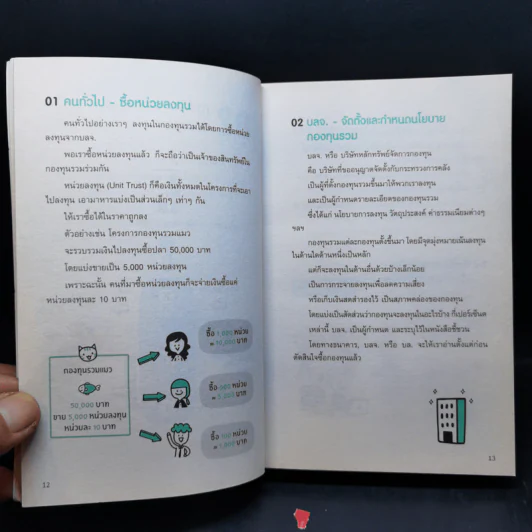 01 คนทั่วไป - ซื้อหน่วยลงทุน
คนทั่วไปอย่างเราๆ ลงทุนในกองทุนรวมได้โดยการซื้อหน่วย
ลงทุนจากบลจ.
พอเราซื้อหน่วยลงทุนแล้ว ก็จะถือว่าเป็นเจ้าของสินทรัพย์ใน
กองทุนรวมร่วมกัน
หน่วยลงทุน (Unit Trust) ก็คือเงินทั้งหมดในโครงการที่จะเอา
ไปลงทุน เอามาหารแบ่งเป็นส่วนเล็กๆ เท่าๆ กัน
ให้เราซื้อได้ในราคาถูกลง
ตัวอย่างเช่น โครงการกองทุนรวมแมว
จะรวบรวมเงินไปลงทุนซื้อปลา 50,000 บาท
โดยแบ่งขายเป็น 5,000 หน่วยลงทุน
เพราะฉะนั้น คนที่มาซื้อหน่วยลงทุนก็จะจ่ายเงินซื้อแค่
หน่วยลงทุนละ 10 บาท
กองทุนรวมแมว
50,000 บาท
ขาย 5,000 หน่วยลงทุน
หน่วยละ 10 บาท
ซื้อ 1,000 หน่วย
= 10,000 บาท
ซื้อ หน่วย
= บาท
ซื้อ 100 หน่วย
= 1,000 บาท
12
02 บลจ. - จัดตั้งและกำหนดนโยบาย
กองทุนรวม
บลจ. หรือ บริษัทหลักทรัพย์จัดการกองทุน
คือ บริษัทที่ขออนุญาตจัดตั้งกับกระทรวงการคลัง
เป็นผู้ที่ตั้งกองทุนรวมขึ้นมาให้พวกเราลงทุน
และเป็นผู้กำหนดรายละเอียดของกองทุนรวม
ซึ่งได้แก่ นโยบายการลงทุน วัตถุประสงค์ ค่าธรรมเนียมต่างๆ
ฯลฯ
กองทุนรวมแต่ละกองทุนตั้งขึ้นมา โดยมีจุดมุ่งหมายเน้นลงทุน
ในด้านใดด้านหนึ่งเป็นหลัก
แต่ก็จะลงทุนในด้านอื่นด้วยบ้างเล็กน้อย
เป็นการกระจายลงทุนเพื่อลดความเสี่ยง
หรือเก็บเงินสดสำรองไว้ เป็นสภาพคล่องของกองทุน
โดยแบ่งเป็นสัดส่วนว่ากองทุนจะลงทุนในอะไรบ้าง กี่เปอร์เซ็นต์
เหล่านี้ บลจ. เป็นผู้กำหนด และระบุไว้ในหนังสือชี้ชวน
โดยทางธนาคาร, บลจ. หรือ บล. จะให้เราอ่านตั้งแต่ก่อน
ตัดสินใจซื้อกองทุนแล้ว
13